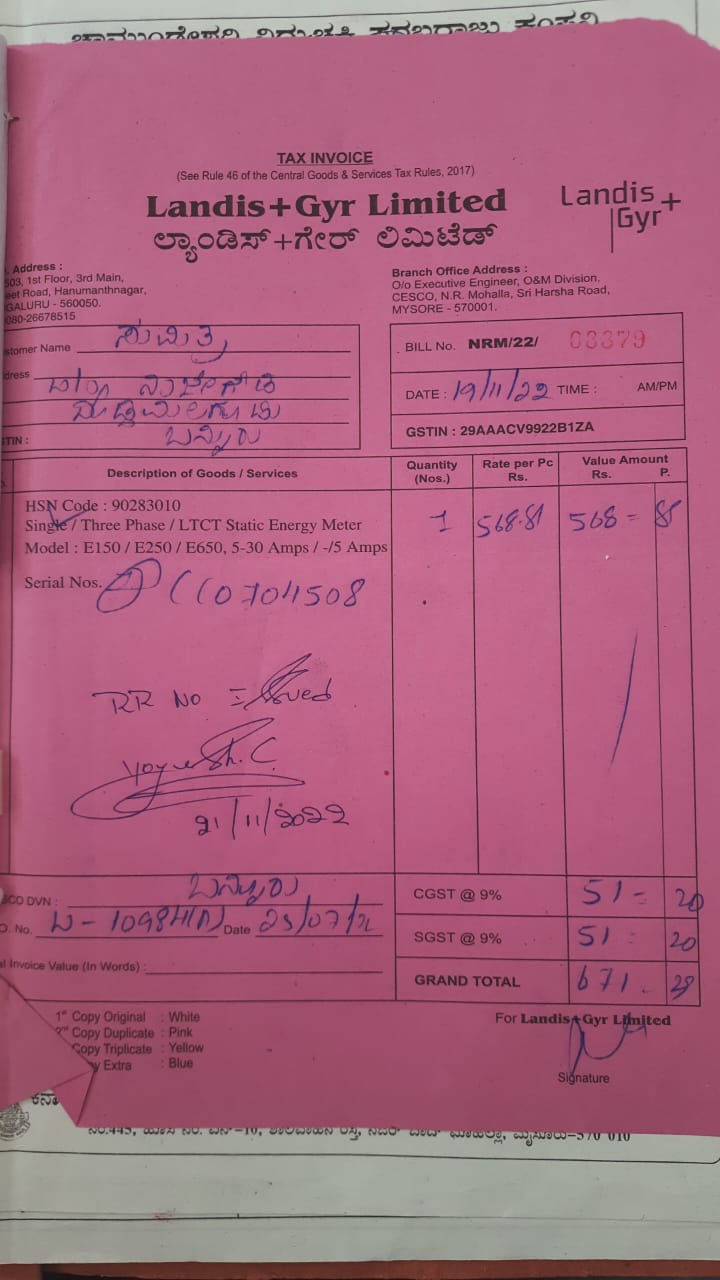 TAX INVOICE
(See Rule 46 of the Central Goods & Services Tax Rules, 2017)
Landis+Gyr Limited
ಲ್ಯಾಂಡಿಸ್+ಗೇರ್ ಲಿಮಿಟೆಡ್
Landis
Gyr+
Address :
503, 1st Floor, 3rd Main,
eet Road, Hanumanthnagar,
GALURU - 560050.
080-26678515
Branch Office Address :
O/o Executive Engineer, O&M Division,
CESCO, N.R. Mohalla, Sri Harsha Road,
MYSORE - 570001.
stomer Name ಸುಮಿತ್ರ
dress
ಬನ್ನೂರು
TIN :
BILL No. NRM/22/ 03379
DATE : 19/11/22 TIME : AM/PM
GSTIN : 29AAACV9922B1ZA
Description of Goods / Services
Quantity (Nos.)
Rate per Pc Rs.
Value Amount Rs. P.
HSN Code : 90283010
Single / Three Phase / LTCT Static Energy Meter
Model : E150 / E250 / E650, 5-30 Amps / -/5 Amps
1 568.81 568 =
Serial Nos. 0704508
RR No
Yogesh. C.
21/11/2022
CO DVN : ಬನ್ನೂರು
O. No. Date
l Invoice Value (In Words) :
CGST @ 9% 51 = 20
SGST @ 9% 51 = 20
GRAND TOTAL 671
1st Copy Original : White
2nd Copy Duplicate : Pink
Copy Triplicate : Yellow
y Extra : Blue
For Landis+Gyr Limited
Signature